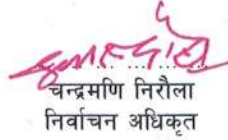 चन्द्रमणि निरौला
निर्वाचन अधिकृत